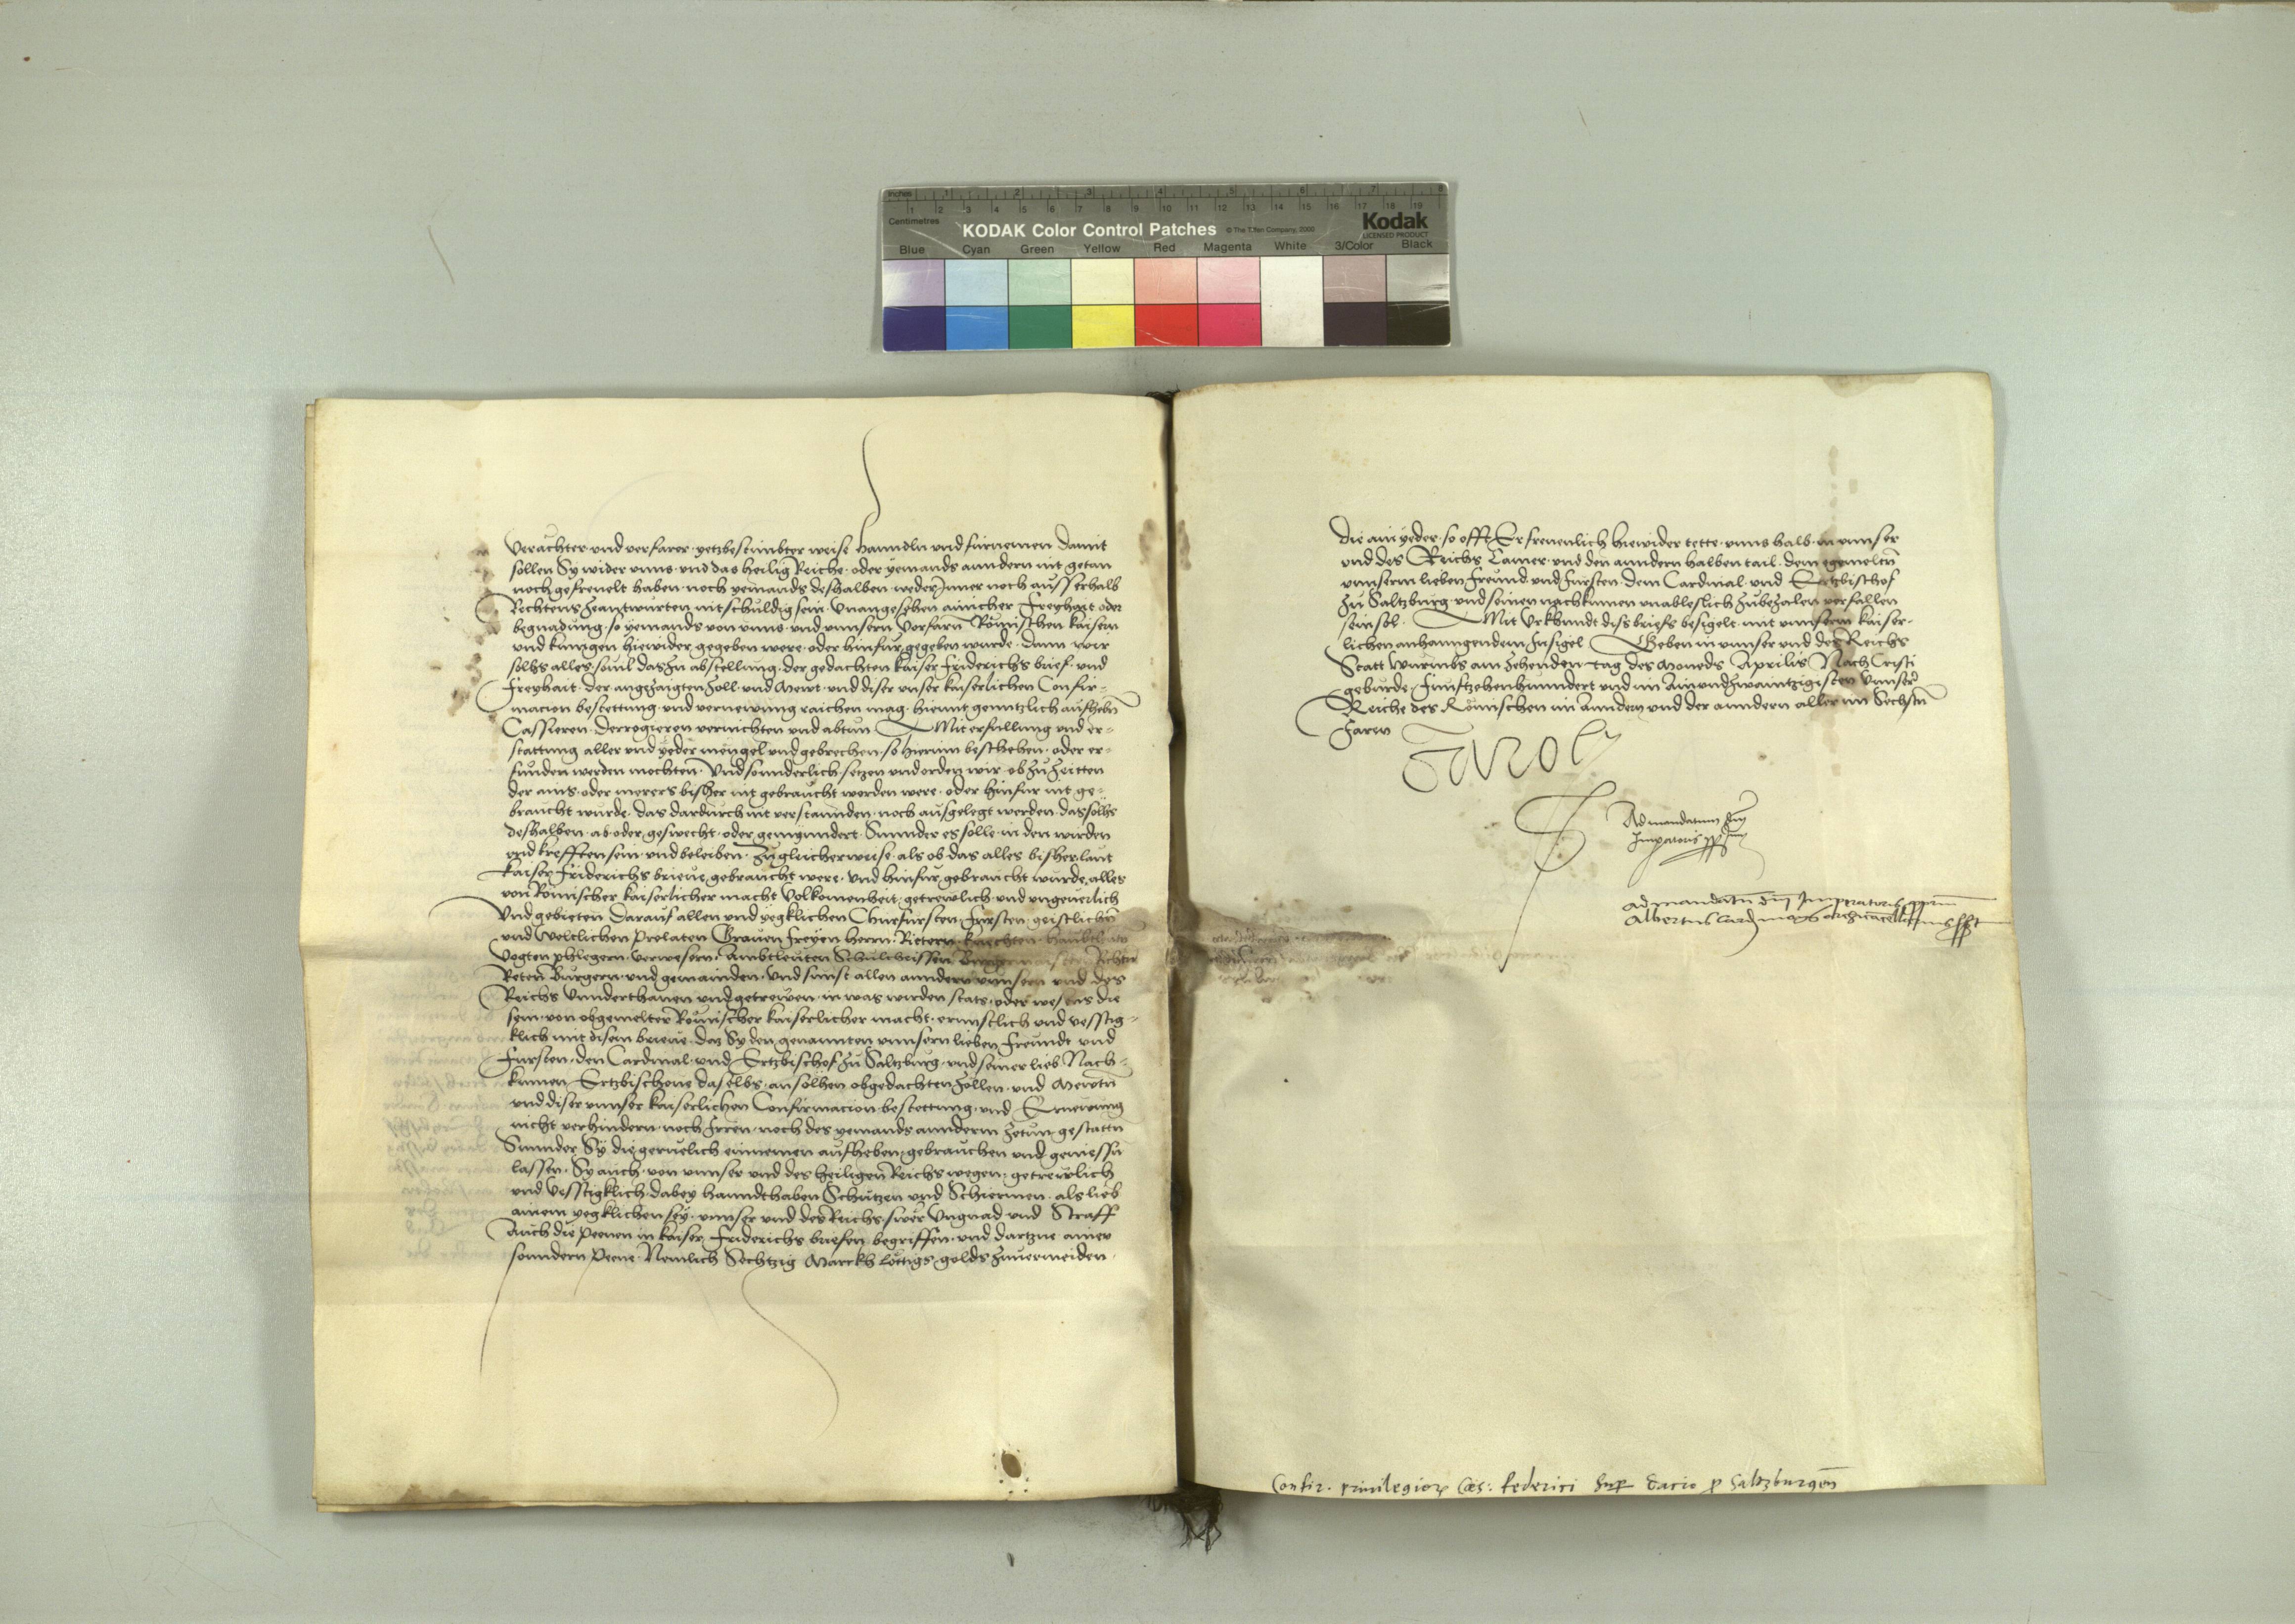 Inches 1 2 3 4 5 6 7 8
Centimetres 1 2 3 4 5 6 7 8 9 10 11 12 13 14 15 16 17 18 19
KODAK Color Control Patches © The Tiffen Company, 2000 Kodak
LICENSED PRODUCT
Blue Cyan Green Yellow Red Magenta White 3/Color Black
Verachter und verfarer yetzbestimbter weise hanndln und fürnemen damit
sollen Sy wider unns und das heilig Reiche oder yemands anndern nit getan
noch gefreuelt haben noch yemands deshalben weder Inner noch ausserhalb
Rechtens zeantwurten nit schuldig sein Unangesehen ainicher Freyhait oder
begnadung so yemands von unns und unnsern Vorfarn Römischen kaisern
und kunigen hiewider gegeben were oder hinfur gegeben wurde dann wir
solhs alles souil das zu abstellung der gedachten kaiser Friderichs brief und
Freyhait der angezaigten Zoll und Mewt und diser unser kaiserlichen Confir-
macion bestettung und vernewung raichen mag hiemit genntzlich aufhebn
Cassieren Derrogieren vernichten und abtun Mit erfullung und er-
stattung aller und yeder mengel und gebrechen so hierinn beschehen oder er-
funden werden mochten Und sonnderlich setzen und orden wir ob zu Zeitten
der ains oder merers bisher nit gebraucht worden were oder hinfur nit ge-
braucht wurde das dardurch nit verstannden noch ausgelegt werden das solhs
deshalben ab oder geswecht oder gemynndert Sunnder es solle in den wirden
und krefften sein und beleiben Zugleicherweise als ob das alles bisher laut
kaiser Friderichs brieue gebraucht were Und hinfur gebraucht wurde alles
von Römischer kaiserlicher macht Volkomenheit getrewlich und ungeuerlich
Und gebieten Darauf allen und yegklichen Churfursten Fursten geistlichn
und Weltlichen Prelaten Grauen Freyen herrn Rittern knechten haubtleuten
Vogten phlegern verwesern Ambtleuten Schultheissen Burgermaistern Richtern
Reten Burgern und gemainden Und sunst allen anndern unnsern und des
Reichs Unnderthanen und getrewen in was wirden stats oder wesens die
sein von obgemelter Römischer kaiserlicher macht ernnstlich und vesstig-
klich mit disem brieue daz Sy den genannten unnsern lieben Freundt und
Fursten den Cardinal und Ertzbischof zu Saltzburg und seiner lieb Nach-
kumen Ertzbischoue daselbs an solhen obgedachten Zollen und Mewtn
und diser unnser kaiserlichen Confirmacion bestettung und Ernewung
nicht verhindern noch Irren noch des yemands annderm zetun gestattn
Sunnder Sy die geruelich einnemen aufheben gebrauchen und geniessn
lassen Sy auch von unnser und des heiligen Reichs wegen getrewlich
und Vesstigklich dabey hanndthaben Schutzen und Schiermen als lieb
ainem yegklichen sey unnser und des Reichs swer Ungnad und Straff
Auch die peenen in kaiser Friderichs briefen begriffen und dartzue ainer
sonndern peene Nemlich Sechtzig Marckh löttigs golds zuuermeiden
die ain yeder so offt Er freuenlich hiewider tette unns halb in unnser
und des Reichs Camer und den anndern halben tail dem egemeltn
unnserm lieben Freund und Fursten dem Cardinal und Ertzbischof
zu Saltzburg und seinen nachkumen unableslich zubezalen verfallen
sein sol Mit Urkhundt diss briefs besigelt mit unnserm kaiser-
lichen anhanngendem Insigel Geben in unnser und des Reichs
Statt Wurmbs am zehenden tag des Moneds Aprilis Nach Cristi
geburde Funfftzehenhundert und im Ainundzwaintzigisten Unnser
Reiche des Römischen im anndern und der anndern aller im Sechstn
Jaren
Carol
Ad mandatum dni
Imperatoris ppm
Ad mandatu dni Imperatoris pprium
Albertus Card mogo archicancellarius sspt
Confir. privilegior Cæs: Federici sup Dacio p Saltzburgen